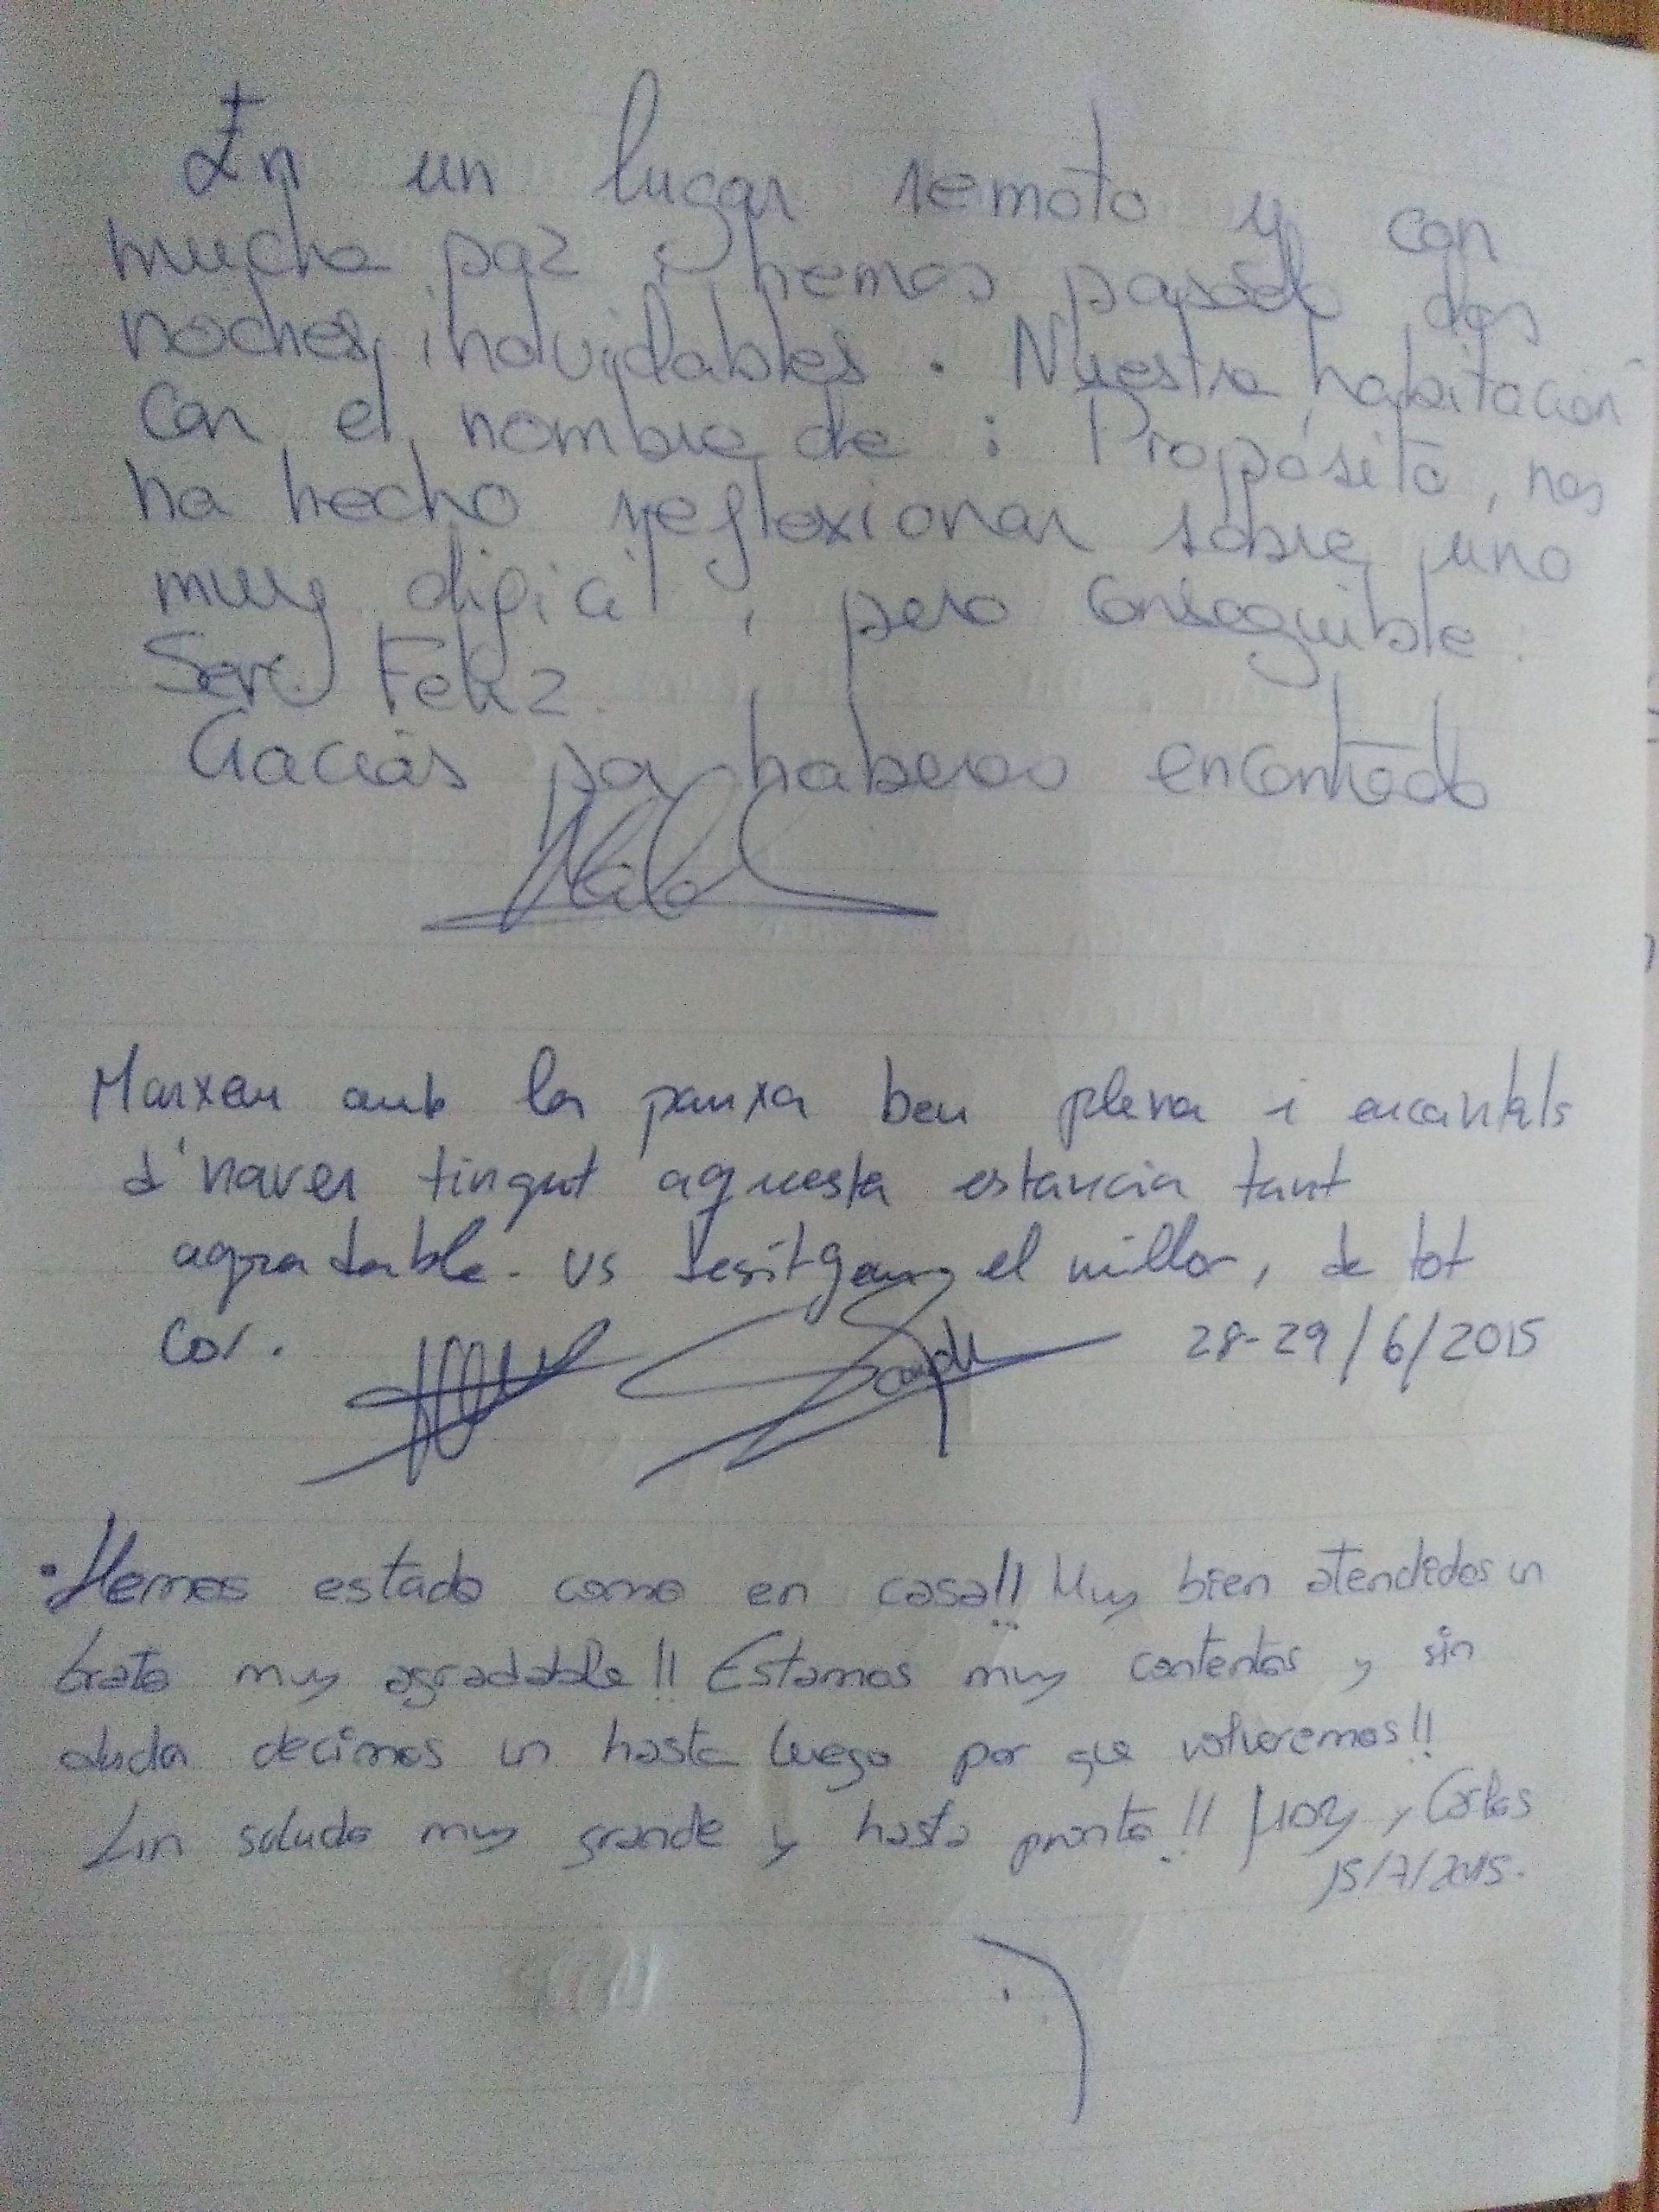 En un lugar remoto y con
mucha paz, hemos pasado dos
noches inolvidables. Nuestra habitación
con el nombre de: Propósito, nos
ha hecho reflexionar sobre uno
muy dificil, pero conseguible:
Seré Feliz.
Gracias por haberos encontrado
Marxem amb la panxa ben plena i encantats
d'haver tingut aquesta estancia tant
agradable. Us desitgem el millor, de tot
cor. 28-29/6/2015
·Hemos estado como en casa!! Muy bien atendidos un
trato muy agradable!! Estamos muy contentos y sin
duda decimos un hasta luego por que volveremos!!
Un saludo muy grande y hasta pronto!! y Carlos
15/7/2015.
:)